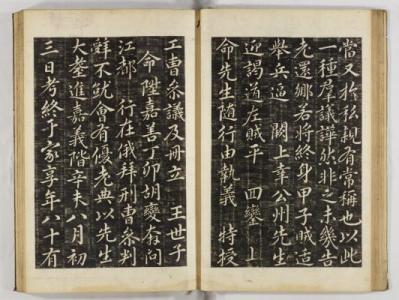 又於私親有常稱也以此
一種羣議譁然非之未幾告
老還鄉若將終身甲子賊适
擧兵逼 闕上幸公州先生
迎謁道左賊平 回鑾 上
命先生隨行由執義 特授
工曹參議及冊立 王世子
命陞嘉善丁卯胡變奔問
江都 行在俄拜刑曹參判
辭不就會有優老典以先生
大耋進嘉義階辛未八月初
三日考終于家享年八十有